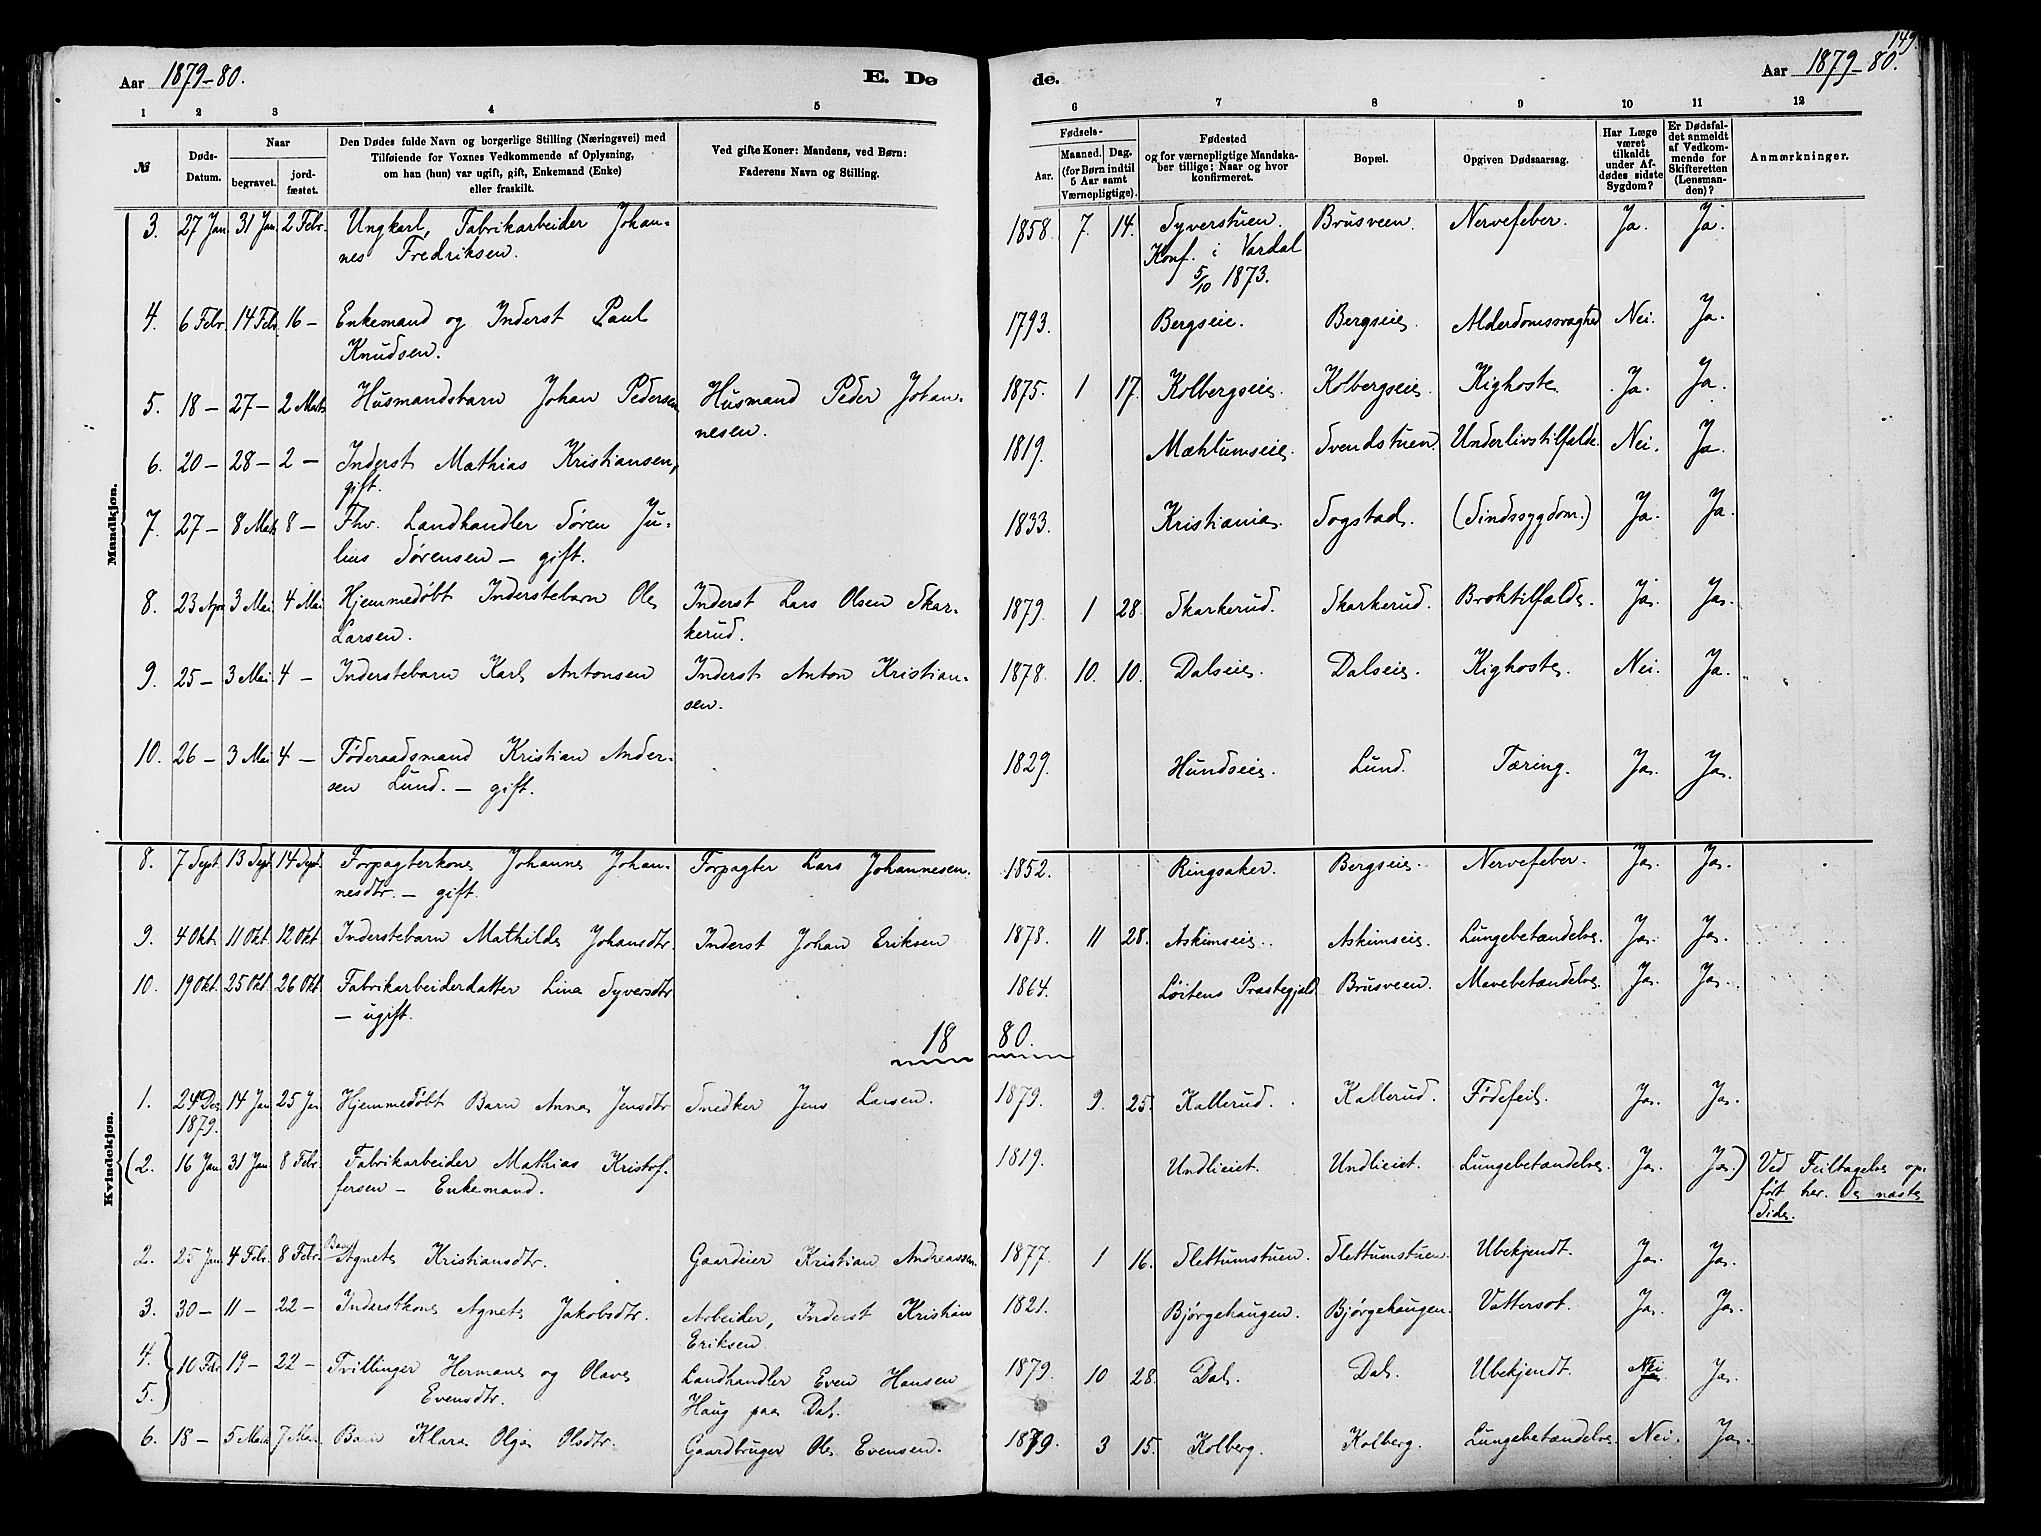 149.
Aar 1879-80. E. Dø
de. Aar 1879-80.
1 2 3 4 5
6 7 8 9 10 11 12
№ Døds-Datum. Naar begravet. jordfæstet. Den Dødes fulde Navn og borgerlige Stilling (Næringsvei) med Tilføiende for Voxnes Vedkommende af Oplysning, om han (hun) var ugift, gift, Enkemand (Enke) eller fraskilt. Ved gifte Koner: Mandens, ved Børn: Faderens Navn og Stilling.
Fødsels- Aar. Maaned. Dag. (for Børn indtil 5 Aar samt Værnepligtige). Fødested og for værnepligtige Mandskaber tillige: Naar og hvor konfirmeret. Bopæl. Opgiven Dødsaarsag. Har Læge været tilkaldt under Afdødes sidste Sygdom? Er Dødsfaldet anmeldt af Vedkommende for Skifteretten (Lensmanden)? Anmærkninger.
Mandkjøn.
3. 27 Jan. 31 Jan. 2 Febr. Ungkarl, Fabrikarbeider Johan- 1858. 7. 14. Syverstuen. Brusveen. Nervefeber. Ja. Ja.
nes Fredriksen. Konf. i Vardal
5/10 1873.
4. 6 Febr. 14 Febr. 16 — Enkemand og Inderst Paul 1793. Bergseie. Bergseie. Alderdomssvaghed Nei. Ja.
Knudsen.
5. 18 — 27 — 2 Mats Husmandsbarn Johan Pedersen Husmand Peder Johan- 1875. 1 17. Kolbergseie. Kolbergseie. Kighoste Ja. Ja.
nesen.
6. 20 — 28 — 2 — Inderst Mathias Kristiansen, 1819. Mæhlumseie. Svendstuen. Underlivstilfælde. Nei. Ja.
gift.
7. 27 — 8 Mats 8 — Fhv. Landhandler Søren Ju- 1833. Kristiania. Sogstad. (Sindssygdom.) Ja. Ja.
lius Sørensen — gift.
8. 23 Apr. 3 Mai 4 Mai Hjemmedøbt Inderstebarn Ole Inderst Lars Olsen Skar- 1879. 1 28. Skarkerud. Skarkerud. Broktilfælde. Ja. Ja.
Larsen. kerud.
9. 25 — 3 Mai 4 — Inderstebarn Karl Antonsen Inderst Anton Kristian- 1878. 10. 10. Dalseie. Dalseie. Kighoste. Nei. Ja.
sen.
10. 26 — 3 Mai 4 — Føderaadsmand Kristian Ander- 1829. Hundseie. Lund. Tæring. Ja. Ja.
sen Lund. — gift.
Kvindekjøn.
8. 7 Sept. 13 Sept. 14 Sept. Forpagterkone Johanne Johan- Forpagter Lars Johannesen. 1852. Ringsaker. Bergseie. Nervefeber. Ja. Ja.
nesdtr. — gift.
9. 4 Okt. 11 Okt. 12 Okt. Inderstebarn Mathilde Johansdtr. Inderst Johan Eriksen 1878. 11 28. Askimseie. Askimseie. Lungebetændelse. Ja. Ja.
10. 19 Okt. 25 Okt. 26 Okt. Fabrikarbeiderdatter Lina Syversdtr 1864. Løitens Præstegjeld Brusveen. Mavebetændelse. Ja. Ja.
— ugift.
18 80.
1. 24 Des. 14 Jan 25 Jan Hjemmedøbt Barn Anna Jensdtr Snedker Jens Larsen. 1879. 9. 25. Kallerud. Kallerud. Fødefeil. Ja. Ja.
1879.
(2. 16 Jan 31 Jan 8 Febr. Fabrikarbeider Mathias Kristof- 1819. Undlieiet. Undlieiet. Lungebetændelse. Ja. Ja.) Ved Feiltagelse op-
fersen — Enkemand. ført her. Se næste
Side.
2. 25 Jan. 4 Febr. 8 Febr. Barn Agnete Kristiansdtr. Gaardeier Kristian Andreassen. 1877. 1 16. Slettumstuen. Slettumstuen. Ubekjendt. Ja. Ja.
3. 30 — 11 — 22 — Inderstkone Agnete Jakobsdtr. Arbeider, Inderst Kristian 1821. Bjørgehaugen. Bjørgehaugen. Vattersot. Ja. Ja.
Eriksen
4. 5. } 10 Febr 19 — 22 — Tvillinger Hermane og Olave Landhandler Even Hansen 1879. 10 28. Dal. Dal. Ubekjendt. Nei Ja.
Evensdtr. Haug paa Dal.
6. 18 — 5 Mats 7 Mats Barn Klara Olga Olsdtr. Gaardbruger Ole Evensen. 1879. 3 15. Kolberg. Kolberg. Lungebetændelse. Nei. Ja.